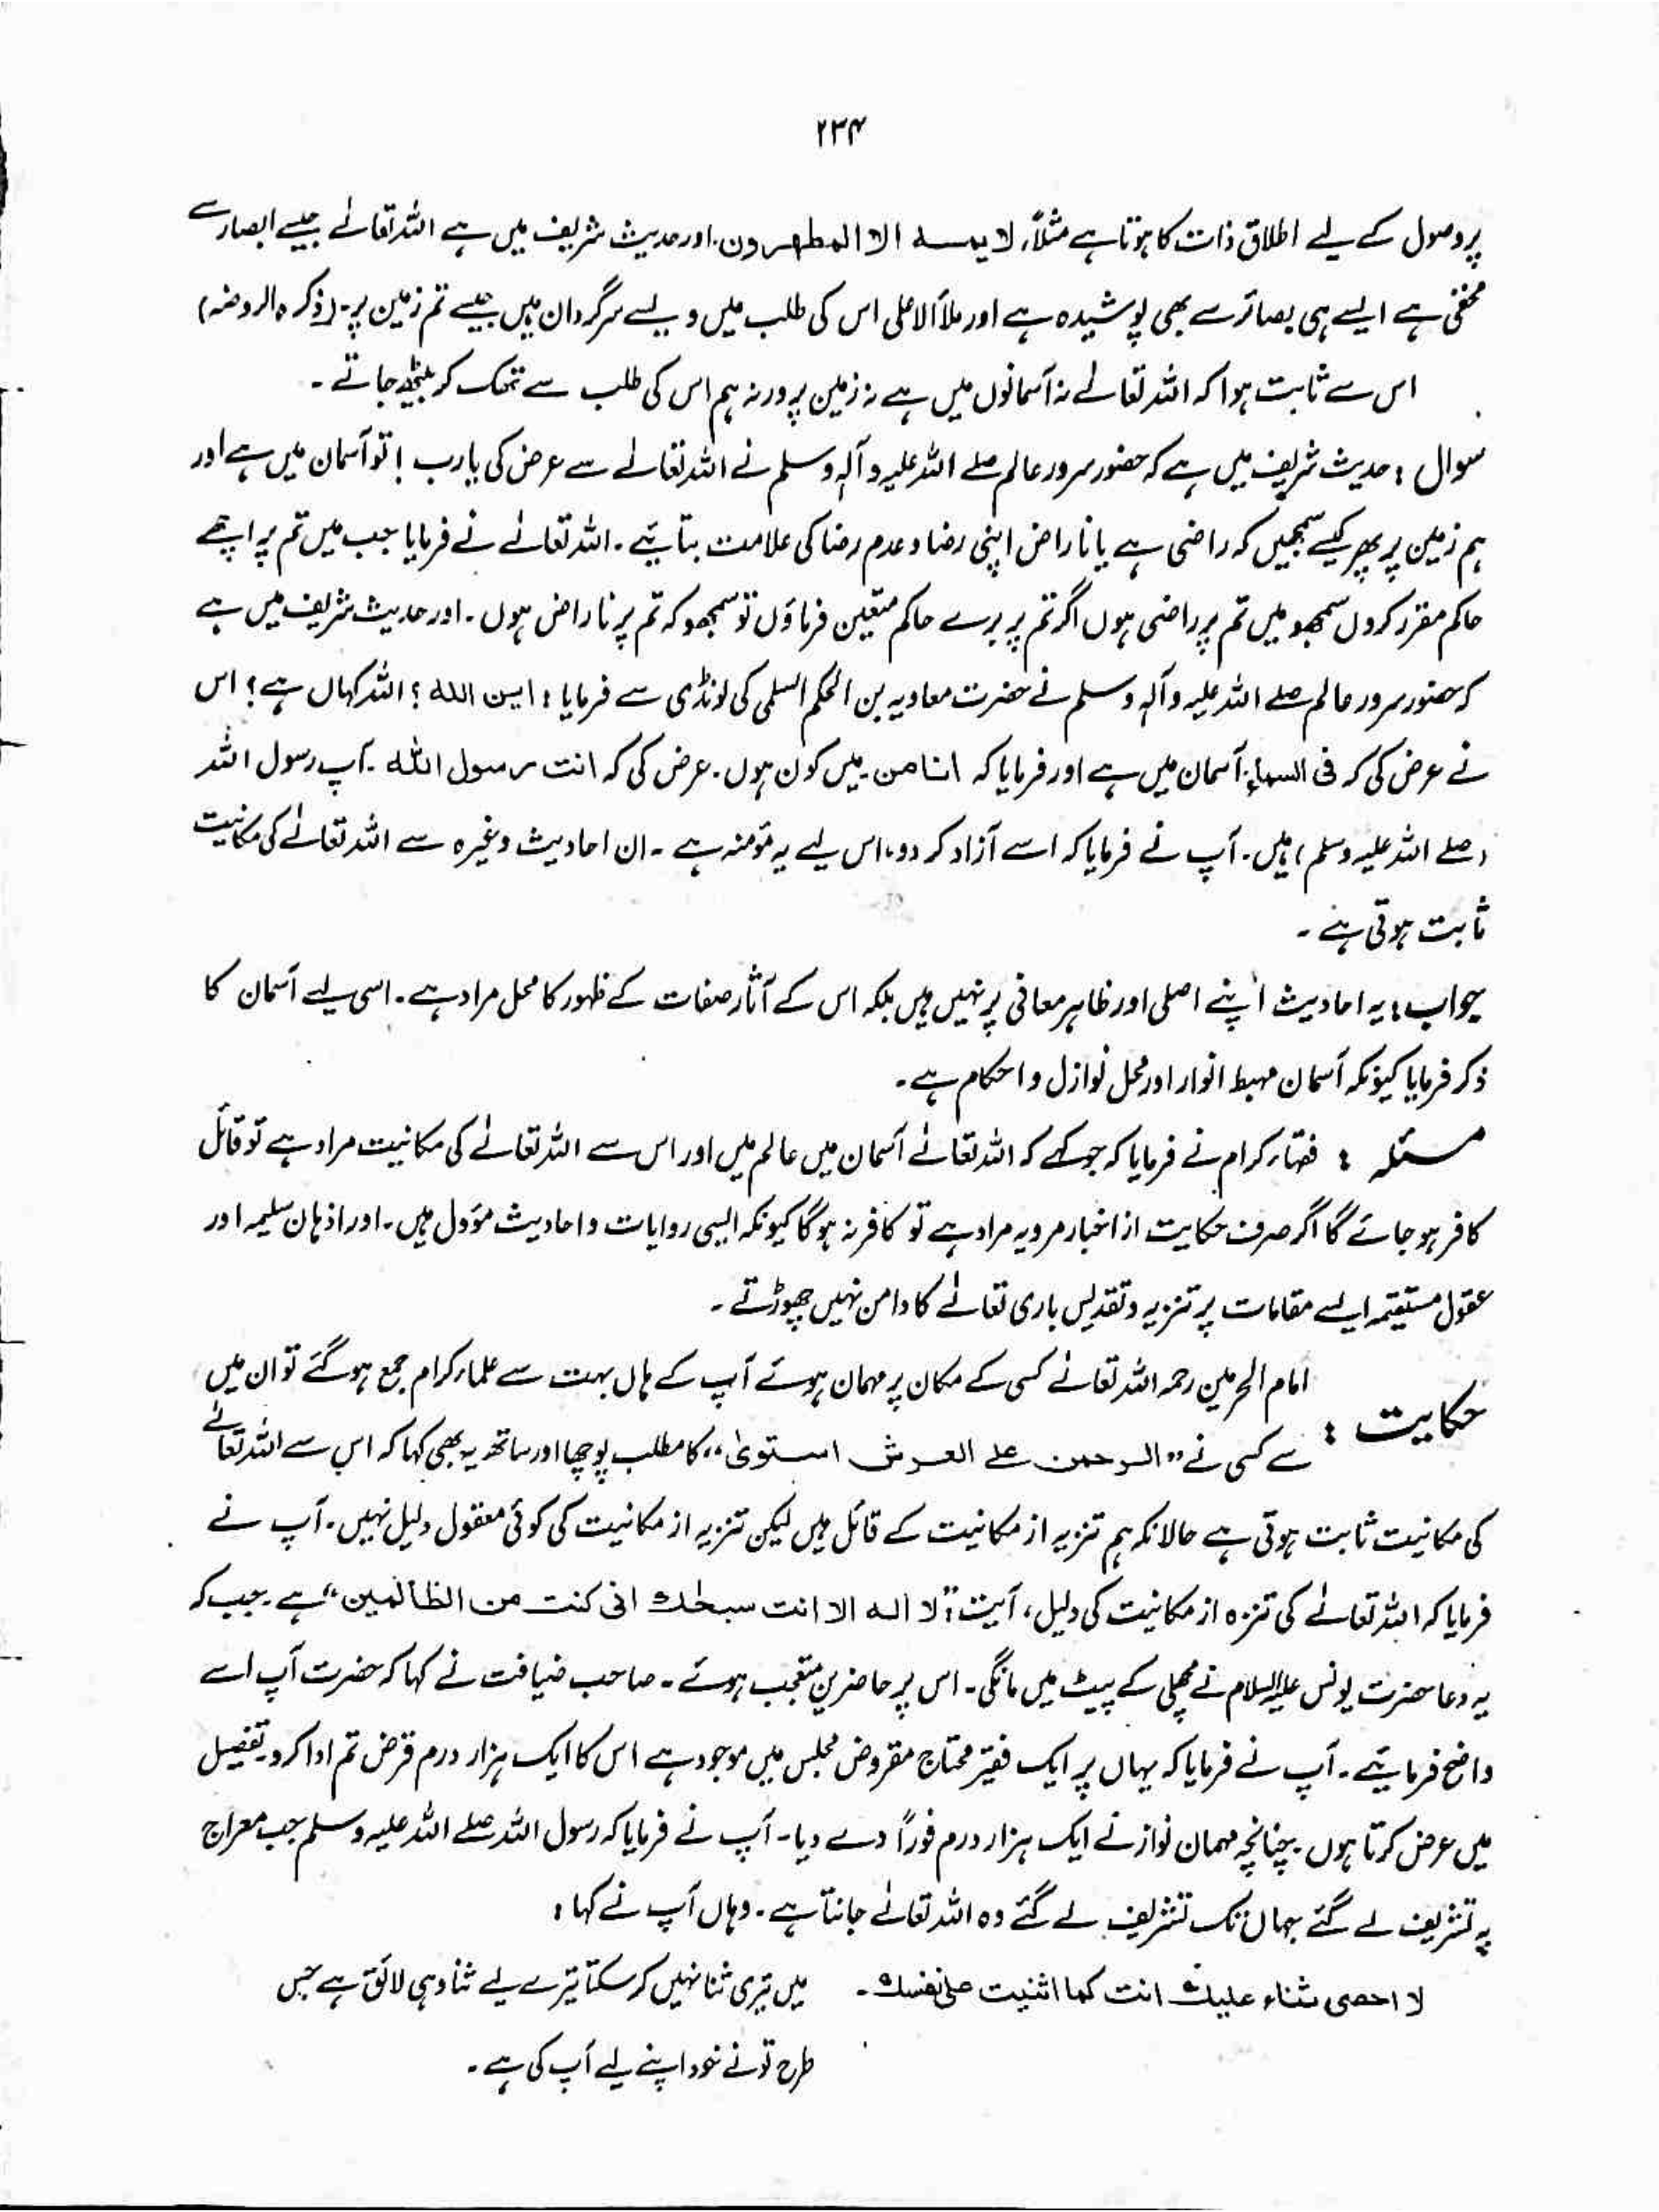 ۲۳۴
پر وصول کے لیے اطلاق ذات کا ہوتا ہے مثلاً، لا یمسہ الا المطھرون. اور حدیث شریف میں ہے اللہ تعالے جیسے ابصار سے
مخفی ہے ایسے ہی بصائر سے بھی پوشیدہ ہے اور ملأ الاعلی اس کی طلب میں ویسے سرگردان ہیں جیسے تم زمین پر۔ (ذکرہ الروضہ)
اس سے ثابت ہوا کہ اللہ تعالے نہ آسمانوں میں ہے نہ زمین پر ورنہ ہم اس کی طلب سے تھک کر بیٹھ جاتے ۔
سوال : حدیث شریف میں ہے کہ حضور سرور عالم صلے اللہ علیہ وآلہ وسلم نے اللہ تعالے سے عرض کی یا رب ! تو آسمان میں ہے اور
ہم زمین پر پھر کیسے سمجھیں کہ راضی ہے یا ناراض اپنی رضا و عدم رضا کی علامت بتائیے ۔ اللہ تعالے نے فرمایا جب میں تم پر اچھے
حاکم مقرر کروں سمجھو میں تم پر راضی ہوں اگر تم پر برے حاکم متعین فرماؤں تو سمجھو کہ تم پر ناراض ہوں ۔ اور حدیث شریف میں ہے
کہ حضور سرور عالم صلے اللہ علیہ وآلہ وسلم نے حضرت معاویہ بن الحکم السلمی کی لونڈی سے فرمایا : این اللہ ؟ اللہ کہاں ہے ؟ اس
نے عرض کی کہ فی السماء. آسمان میں ہے اور فرمایا کہ انا من. میں کون ہوں. عرض کی کہ انت رسول اللہ. آپ رسول اللہ
(صلے اللہ علیہ وسلم) ہیں. آپ نے فرمایا کہ اسے آزاد کر دو، اس لیے یہ مؤمنہ ہے ۔ ان احادیث وغیرہ سے اللہ تعالے کی مکانیت
ثابت ہوتی ہے ۔
جواب : یہ احادیث اپنے اصلی اور ظاہر معافی پر نہیں ہیں بلکہ اس کے آثار صفات کے ظہور کا محل مراد ہے ۔ اسی لیے آسمان کا
ذکر فرمایا کیونکہ آسمان مہبط انوار اور محل نوازل و احکام ہے ۔
مسئلہ : فقہاء کرام نے فرمایا کہ جو کہے کہ اللہ تعالے آسمان میں عالم میں اور اس سے اللہ تعالے کی مکانیت مراد ہے تو قائل
کافر ہو جائے گا اگر صرف حکایت از اخبار مرویہ مراد ہے تو کافر نہ ہوگا کیونکہ ایسی روایات و احادیث مؤول ہیں ۔ اور اذہان سلیمہ اور
عقول مستقیمہ ایسے مقامات پر تنزیہ و تقدیس باری تعالے کا دامن نہیں چھوڑتے ۔
امام الحرمین رحمہ اللہ تعالے کسی کے مکان پر مہمان ہوئے آپ کے ہاں بہت سے علماء کرام جمع ہو گئے تو ان میں
حکایت : سے کسی نے ”الرحمن علے العرش استویٰ“ کا مطلب پوچھا اور ساتھ یہ بھی کہا کہ اس سے اللہ تعالےٰ
کی مکانیت ثابت ہوتی ہے حالانکہ ہم تنزیہ از مکانیت کے قائل ہیں لیکن تنزیہ از مکانیت کی کوئی معقول دلیل نہیں ۔ آپ نے
فرمایا کہ اللہ تعالے کی تنزہ از مکانیت کی دلیل، آیت ”لا الہ الا انت سبحٰنک انی کنت من الظالمین“ ہے ۔ جب کہ
یہ دعا حضرت یونس علیہ السلام نے مچھلی کے پیٹ میں مانگی ۔ اس پر حاضرین متعجب ہوئے ۔ صاحب ضیافت نے کہا کہ حضرت آپ اسے
واضح فرمائیے ۔ آپ نے فرمایا کہ یہاں پر ایک فقیر محتاج مقروض مجلس میں موجود ہے اس کا ایک ہزار درم قرض تم ادا کرو تفصیل
میں عرض کرتا ہوں ۔ چنانچہ مہمان نواز نے ایک ہزار درم فوراً دے دیا ۔ آپ نے فرمایا کہ رسول اللہ صلے اللہ علیہ وسلم جب معراج
پہ تشریف لے گئے جہاں تک تشریف لے گئے وہ اللہ تعالے جانتا ہے ۔ وہاں آپ نے کہا :
لا احصی ثناء علیک انت کما اثنیت علیٰ نفسک ۔ میں تیری ثنا نہیں کر سکتا تیرے لیے ثنا وہی لائق ہے جس
طرح تو نے خود اپنے لیے آپ کی ہے ۔